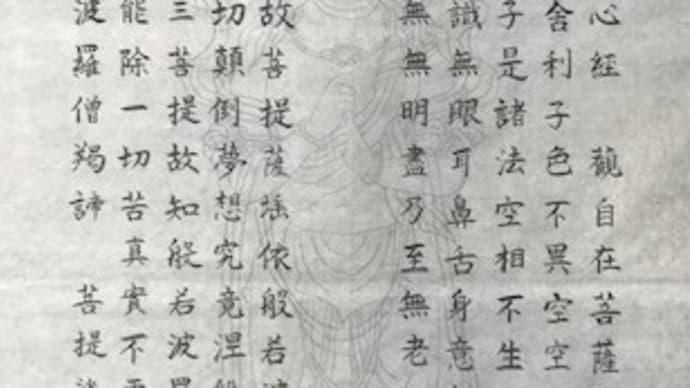 心經　觀自在菩薩
舍利子色不異空空
子是諸法空相不生
識無眼耳鼻舌身意
無無明盡乃至無老
故菩提薩埵依般若波
切顛倒夢想究竟涅槃
三菩提故知般若波羅
能除一切苦真實不
波羅僧羯諦　菩提